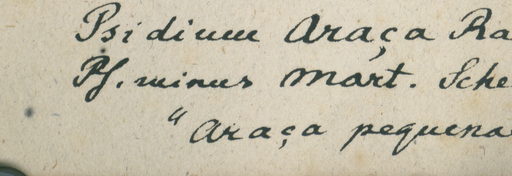 Psidium Araça Ra
Ps. minus Mart. Sche
"Araça pequena